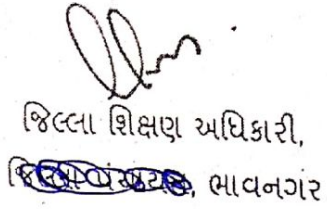 જિલ્લા શિક્ષણ અધિકારી,
ભાવનગર